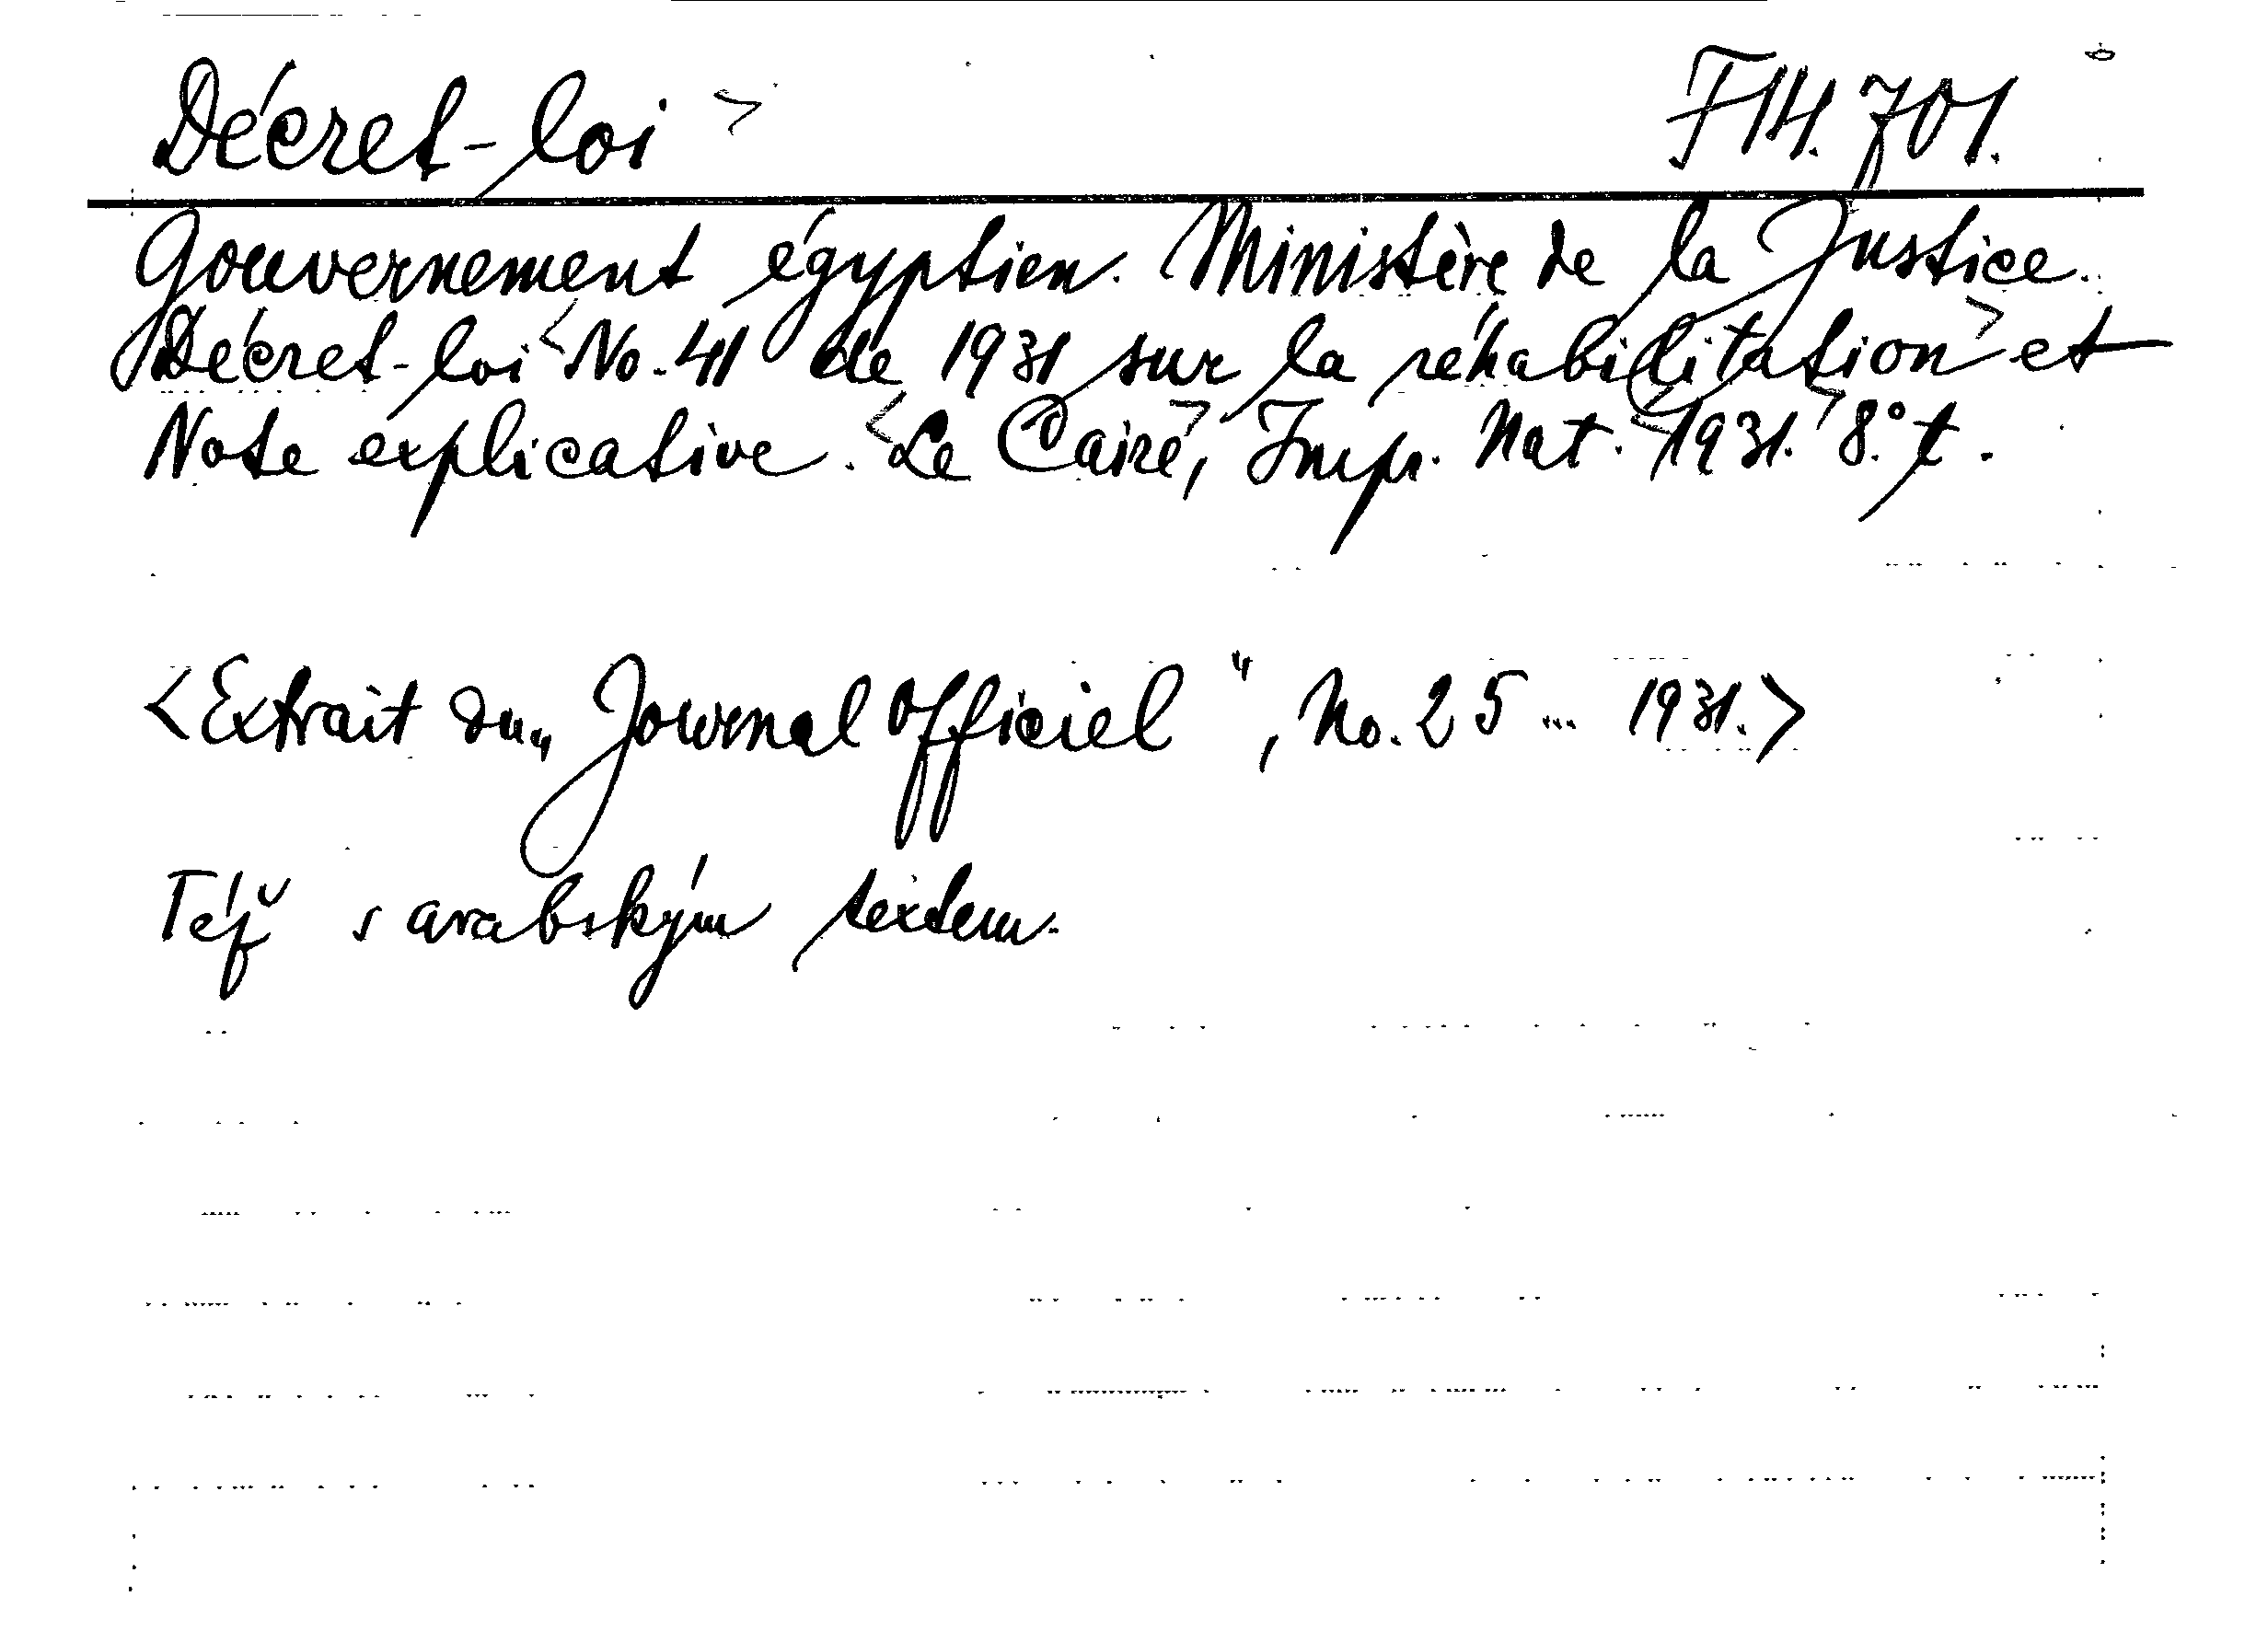 Décret-loi > F 14.701.
Gouvernement égyptien. Ministère de la Justice.
Décret-loi < No. 41 de 1931 sur la réhabilitation > et
Note explicative. < Le Caire >, Impr. Nat. < 1931. > 8.° t.
<Extrait du „Journal officiel“, No. 25 ... 1931.>
Též s arabským textem.